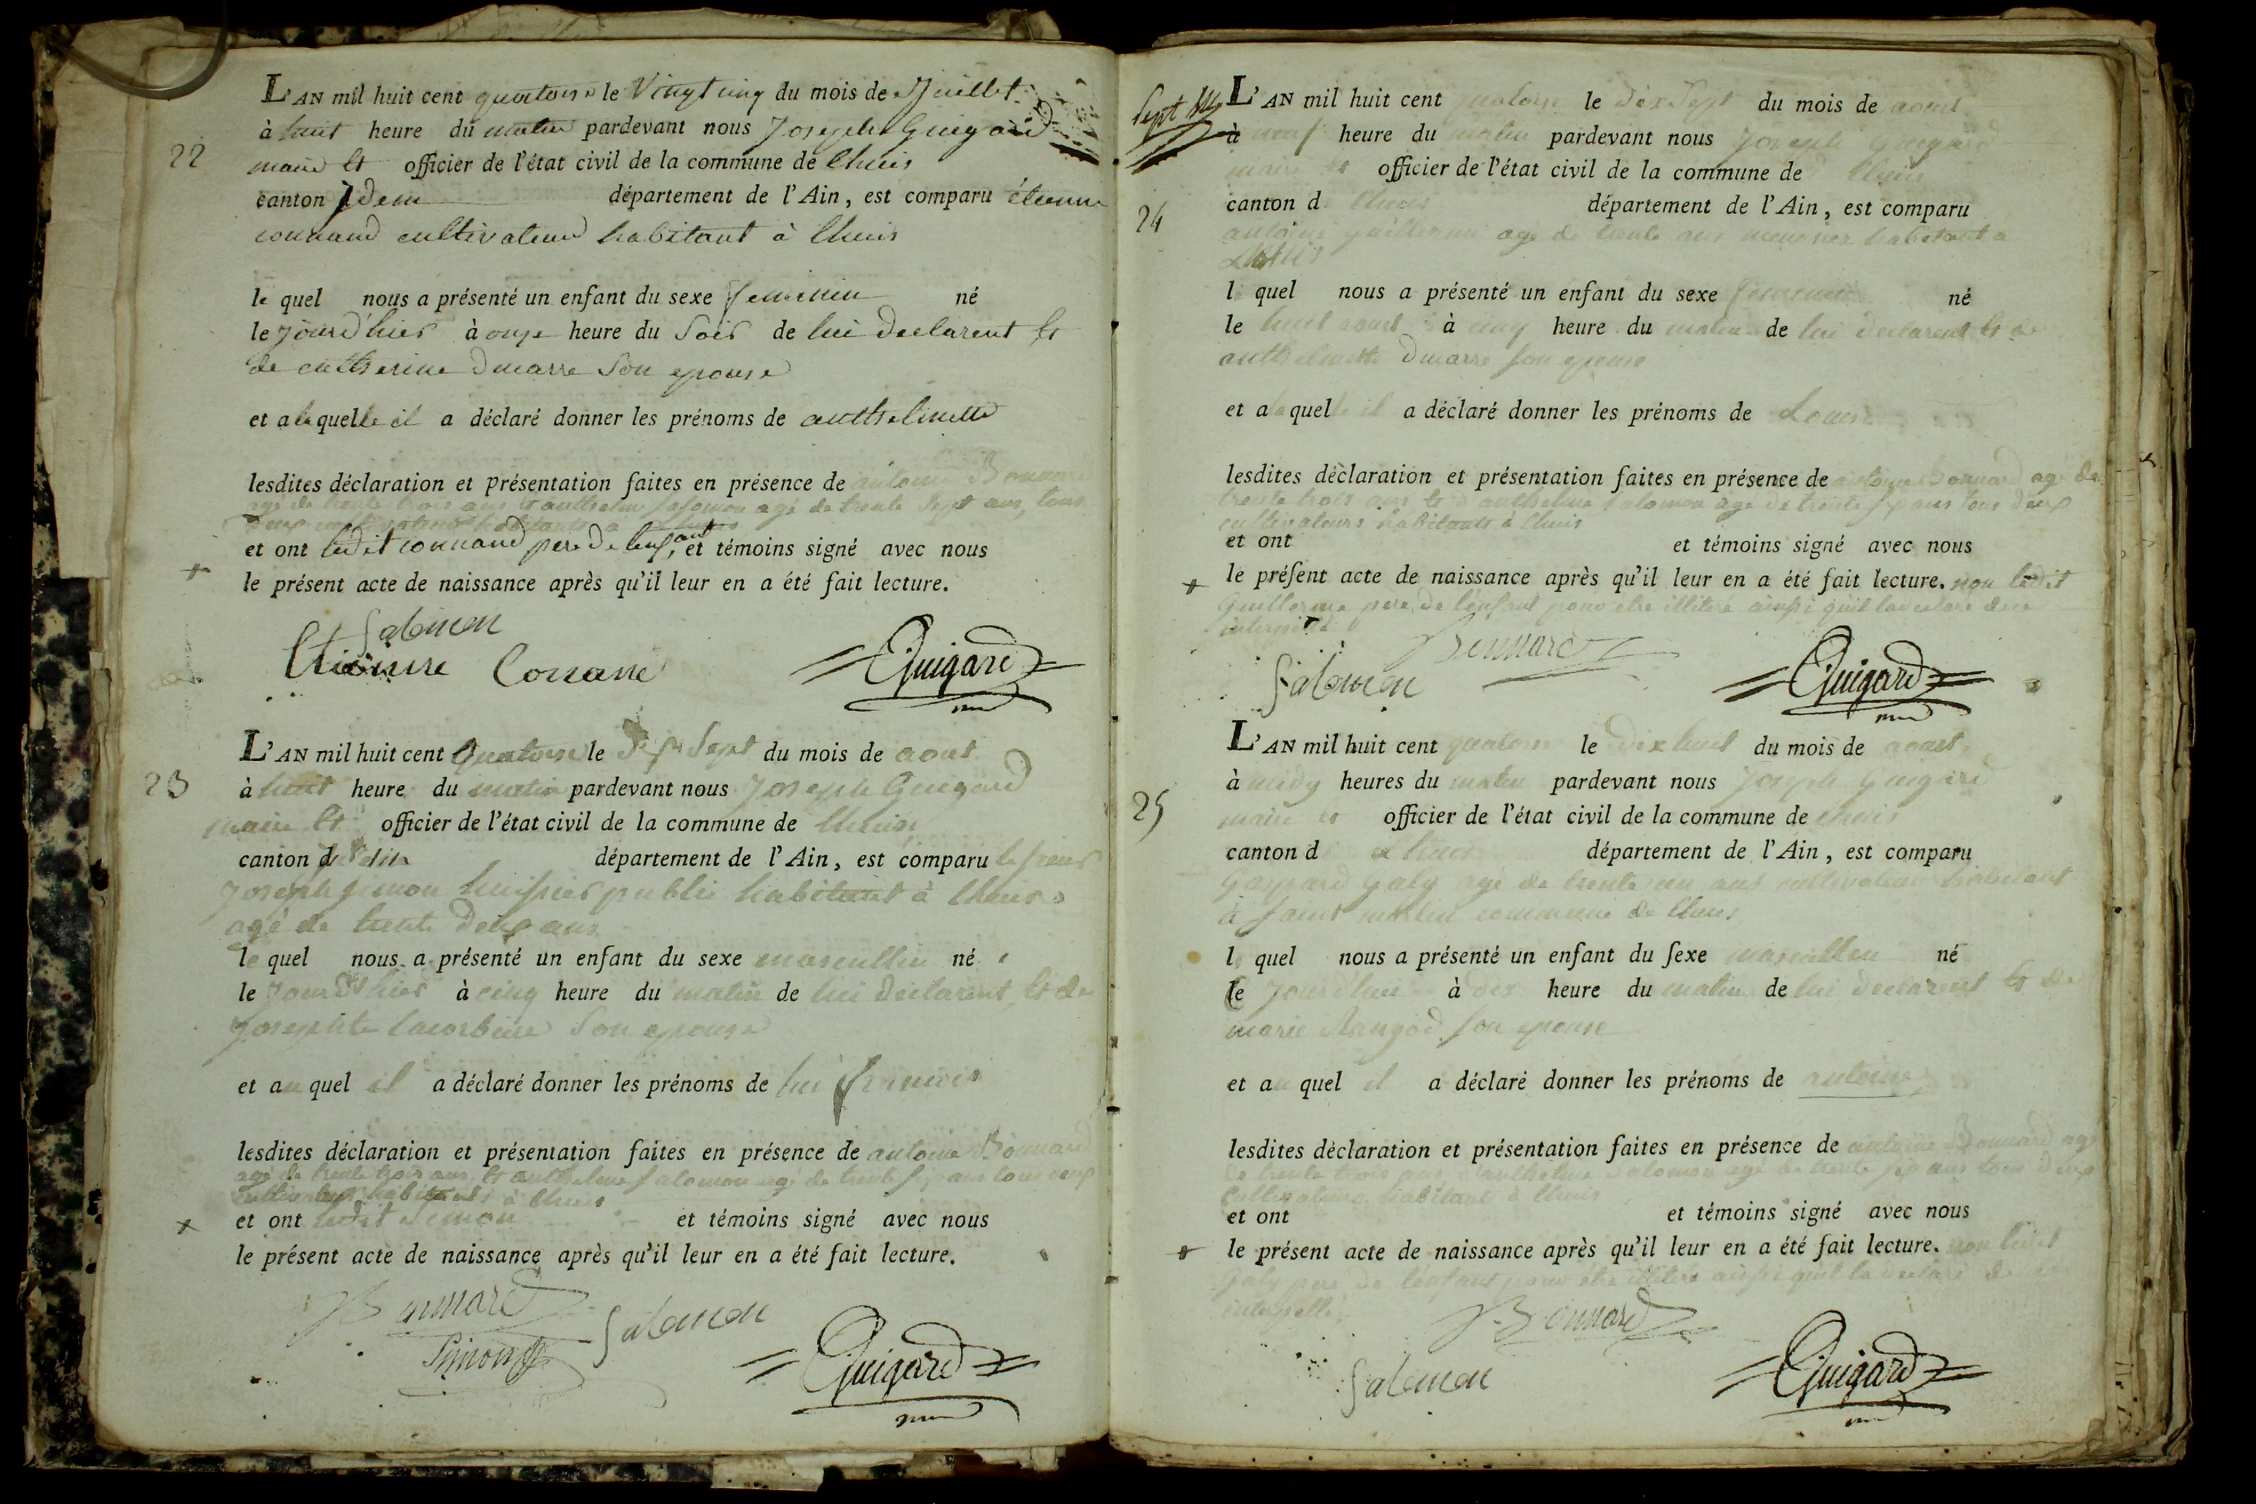 22
L'AN mil huit cent quatorze le Vingt cinq du mois de Juillet
à huit heure du matin pardevant nous Joseph Guigard
maire et officier de l'état civil de la commune de Lhuis
canton idem département de l'Ain, est comparu étienne
connand cultivateur habitant à Lhuis
le quel nous a présenté un enfant du sexe feminin né
le jourd'hier à onze heure du Soir de lui declarent et
de catherine Dmarre Son epouse
et a la quelle il a déclaré donner les prénoms de anthelmette
lesdites déclaration et présentation faites en présence de antoine Bonnard
agé de trente trois ans et anthelme Salomon agé de trente Sept ans, tous
deux cultivateurs habitants à Lhuis
et ont ledit connand pere de lenfant, et témoins signé avec nous
le présent acte de naissance après qu'il leur en a été fait lecture.
Salomon
Etienne Conand Guigard
23
L'AN mil huit cent quatorze le dix Sept du mois de aout
à huit heure du matin pardevant nous Joseph Guigard
maire et officier de l'état civil de la commune de Lhuis
canton d département de l'Ain, est comparu le sieur
Joseph Simon huissier public habitant à Lhuis
agé de trente deux ans
le quel nous a présenté un enfant du sexe masculin né
le jourd'hier à cinq heure du matin de lui declarent, et de
Josephte Son epouse
et au quel il a déclaré donner les prénoms de
lesdites déclaration et présentation faites en présence de antoine Bonnard
agé de trente trois ans et anthelme Salomon agé de trente ans tous deux
cultivateurs habitants à Lhuis
et ont ledit Simon et témoins signé avec nous
le présent acte de naissance après qu'il leur en a été fait lecture.
Bonnard Salomon
Simon Guigard
24
L'AN mil huit cent quatorze le dix Sept du mois de aout
à neuf heure du matin pardevant nous Joseph Guigard
maire et officier de l'état civil de la commune de Lhuis
canton d Lhuis département de l'Ain, est comparu
antoine guillerme agé de trente ans habitant a
Lhuis
l quel nous a présenté un enfant du sexe feminin né
le huit aout à cinq heure du matin de lui declarent et de
anthelmette Dmarre son epouse
et a la quelle il a déclaré donner les prénoms de Louise
lesdites déclaration et présentation faites en présence de antoine Bonnard agé de
trente trois ans et anthelme Salomon agé de trente ans tous deux
cultivateurs habitants à Lhuis
et ont et témoins signé avec nous
le présent acte de naissance après qu'il leur en a été fait lecture. non ledit
Guillerme pere de lenfant pour etre illitéré ainsi quil la declaré
Bonnard
Salomon Guigard
25
L'AN mil huit cent quatorze le dix huit du mois de aout
à midy heures du matin pardevant nous Joseph Guigard
maire et officier de l'état civil de la commune de Lhuis
canton d Lhuis département de l'Ain, est comparu
Gaspard Galy agé de trente un ans cultivateur habitant
à Saint martin commune de Lhuis
l quel nous a présenté un enfant du sexe masculin né
le à dix heure du matin de lui declarent et de
marie son epouse
et au quel il a déclaré donner les prénoms de antoine
lesdites déclaration et présentation faites en présence de antoine Bonnard agé
de trente trois ans anthelme Salomon agé de trente ans tous deux
cultivateurs habitant à Lhuis
et ont et témoins signé avec nous
le présent acte de naissance après qu'il leur en a été fait lecture. non ledit
Galy pere de lenfant pour etre illitéré ainsi quil la declaré
Bonnard
Salomon Guigard